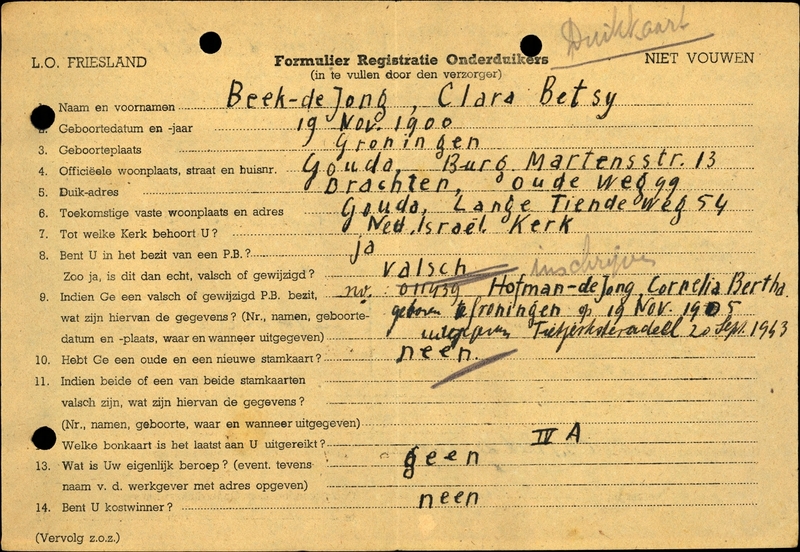 Duikkaart
L.O. FRIESLAND Formulier Registratie Onderduikers NIET VOUWEN
(in te vullen door den verzorger)
Naam en voornamen Beek-de Jong, Clara Betsy
2. Geboortedatum en -jaar 19 Nov. 1900
3. Geboorteplaats Groningen
4. Officiëele woonplaats, straat en huisnr. Gouda, Burg. Martensstr. 13
5. Duik-adres Drachten, Oude weg 99
6. Toekomstige vaste woonplaats en adres Gouda, Lange Tiende weg 54
7. Tot welke Kerk behoort U? Ned. Israël. Kerk
8. Bent U in het bezit van een P.B.? ja
Zoo ja, is dit dan echt, valsch of gewijzigd? valsch inschrijven
9. Indien Ge een valsch of gewijzigd P.B. bezit, no. Hofman-de Jong Cornelia Bertha
wat zijn hiervan de gegevens? (Nr., namen, geboorte- geboren te Groningen op 19 Nov. 1905
datum en -plaats, waar en wanneer uitgegeven) uitgegeven Tietjerksteradeel 20 Sept. 1943
10. Hebt Ge een oude en een nieuwe stamkaart? neen.
11. Indien beide of een van beide stamkaarten
valsch zijn, wat zijn hiervan de gegevens?
(Nr., namen, geboorte, waar en wanneer uitgegeven)
Welke bonkaart is het laatst aan U uitgereikt? IV A
13. Wat is Uw eigenlijk beroep? (event. tevens geen
naam v. d. werkgever met adres opgeven)
14. Bent U kostwinner? neen
(Vervolg z.o.z.)